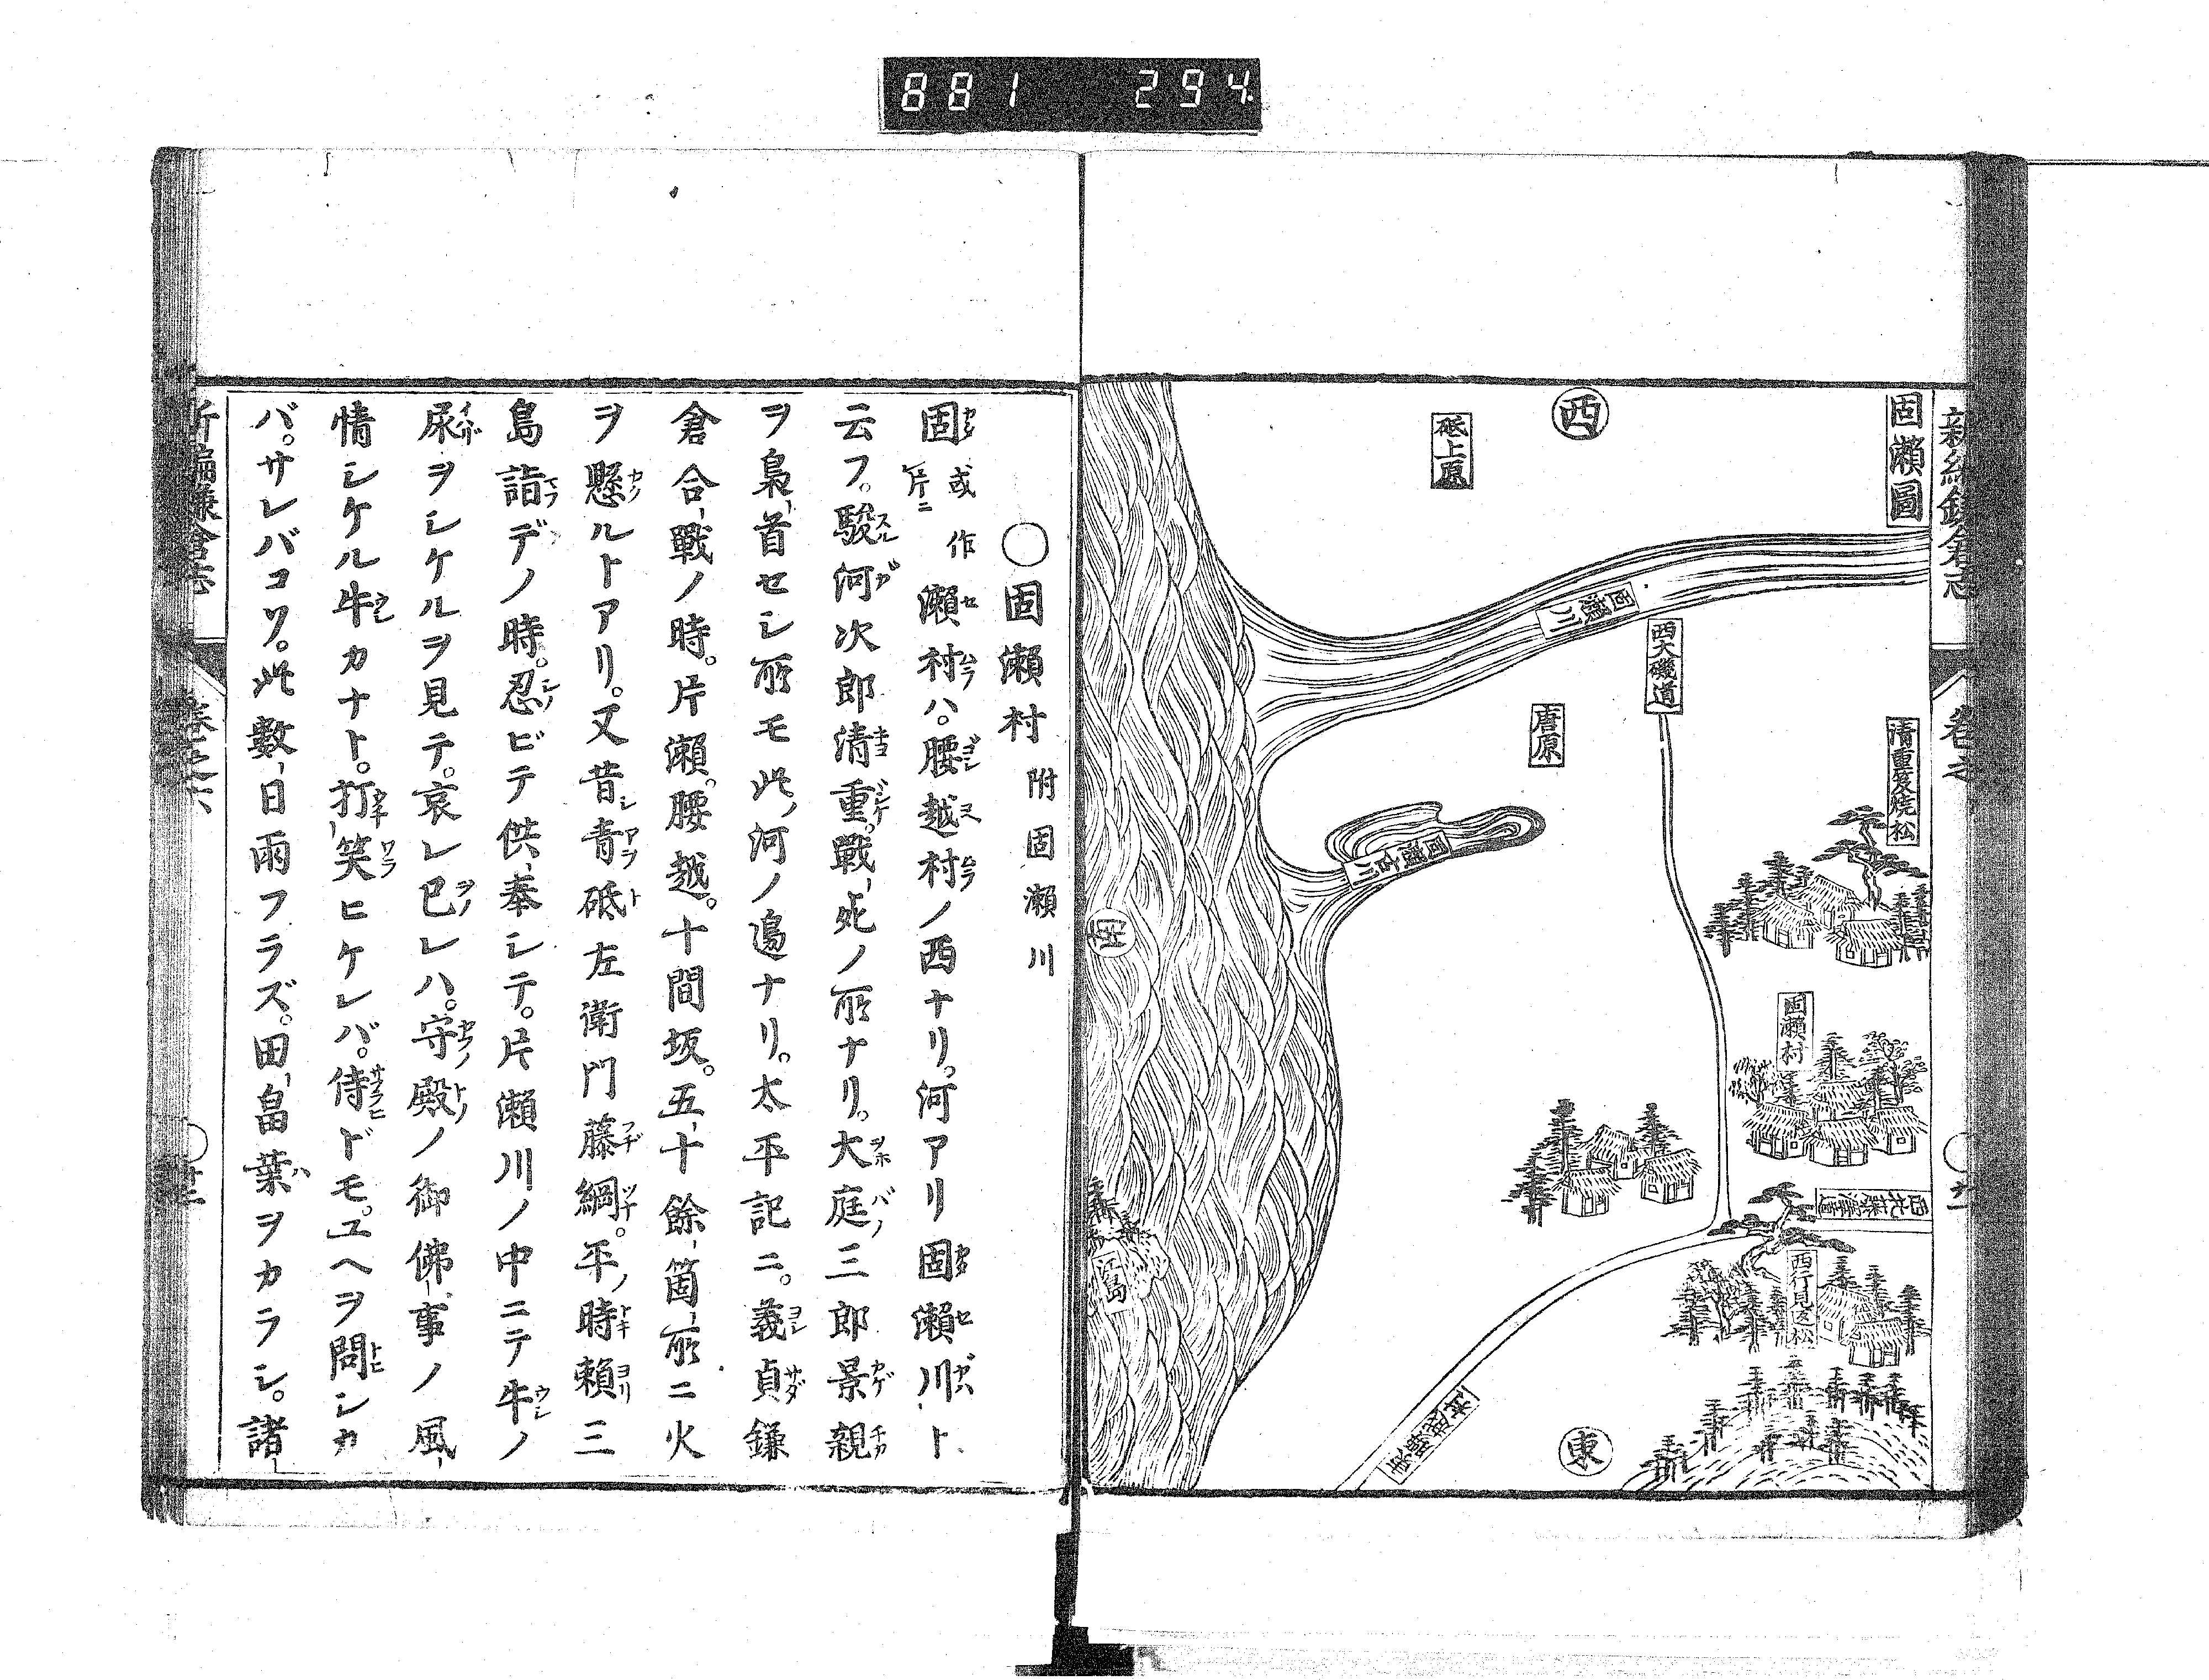 881 294
新編鎌倉志
卷之
固瀨圖
西
砥上原
固瀨川
西大磯道
唐原
清重笈燒松
固瀨古川
固瀨村
江島
西行見返松
東
〇固瀨村 附固瀨川
固 或作片ニ 瀨村ハ。腰越村ノ西ナリ。河アリ固瀨川ト
云フ。駿河次郎清重。戰死ノ所ナリ。大庭三郎景親
ヲ梟首セシ所モ此河ノ邉ナリ。太平記ニ。義貞鎌
倉合戰ノ時。片瀨。腰越。十間坂。五十餘箇所ニ火
ヲ懸ルトアリ。又昔シ青砥左衛門藤綱。平時賴三
島詣デノ時。忍ビテ供奉シテ。片瀨川ノ中ニテ牛ノ
尿ヲシケルヲ見テ。哀レ己レハ。守殿ノ御佛事ノ風
情シケル牛カナト。打笑ヒケレバ。侍ドモ。ユヘヲ問シカ
バ。サレバコソ。此數日雨フラズ。田畠葉ヲカラシ。諸
新編鎌倉志
卷之六